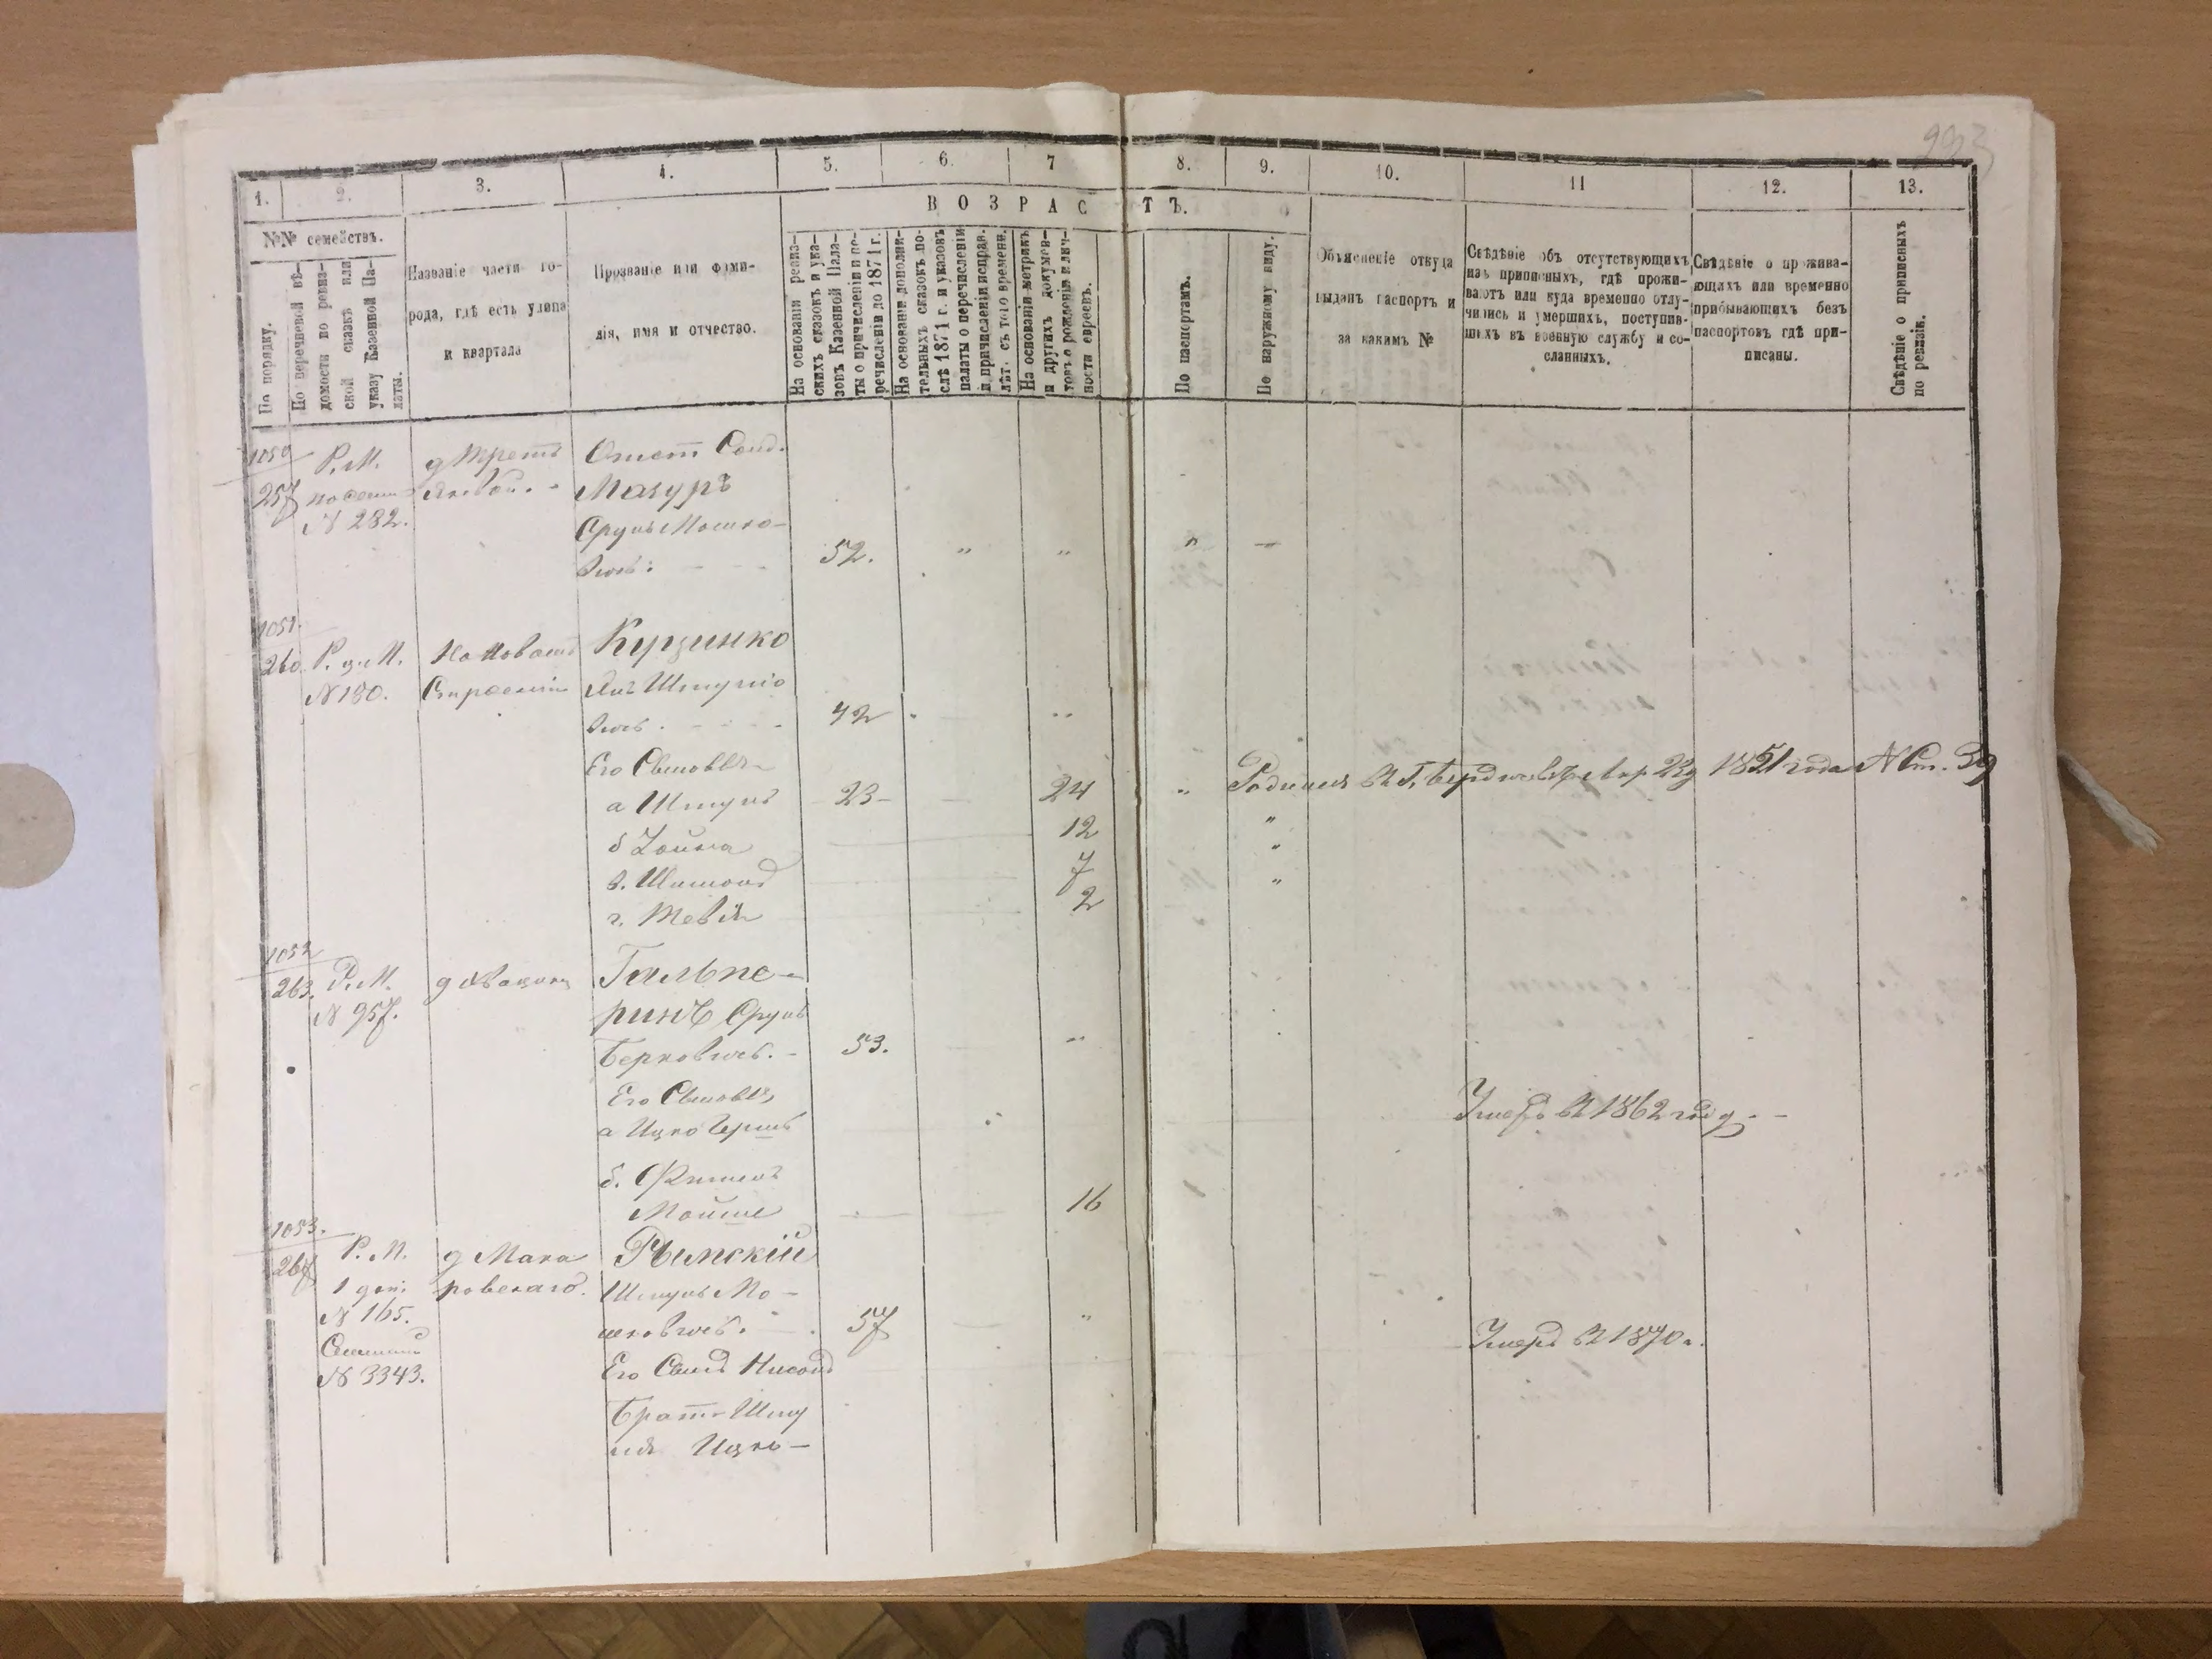 283
1. 2. 3. 4. 5. 6. 7 8. 9. 10. 11 12. 13.
ВОЗРАСТЪ.
№№ семействъ.
По порядку.
По перечневой вѣ-
домости по ревиз-
ской сказкѣ или
указу Казенной Па-
латы.
Названіе части го-
рода, гдѣ есть улица
и квартала
Прозваніе или фами-
лія, имя и отчество.
На основаніи ревиз-
скихъ сказокъ и ука-
зовъ Казенной Пала-
ты о причисленіи и пе-
речисленіи до 1871 г.
На основаніи дополни-
тельныхъ сказокъ по-
слѣ 1871 г. и указовъ
палаты о перечисленіи
и причисленіи исправ.
лѣт. съ того времени.
На основаніи метрикъ
и другихъ докумен-
товъ о рожденіи и лич-
ности евреевъ.
По паспортамъ.
По наружному виду.
Объясненіе откуда
выданъ паспортъ и
за какимъ №
Свѣдѣніе объ отсутствующихъ
изъ приписныхъ, гдѣ прожи-
ваютъ или куда временно отлу-
чились и умершихъ, поступив-
шихъ въ военную службу и со-
сланныхъ.
Свѣдѣніе о прожива-
ющихъ или временно
прибывающихъ безъ
паспортовъ гдѣ при-
писаны.
Свѣдѣніе о приписныхъ
по ревизіи.
1050
257 Р. М.
N 282.
Мазуръ
Срулъ Мошко-
вичъ. 52. " " " —
1051.
260. Р. и М. Курзинко
N 180. Строеніи
вичъ. 42
Его Сыновья
а Шмуль 23 — 24 " Родился въ Г. Бердичевѣ 1851 года N Ст. 39
б 12 "
в. 7 "
г. Тевія 2 "
1052
263. Р. М. Гальпе-
N 957. ринъ Срулъ
Берковичъ. 53. "
Его Сыновья
а Ицко Гершъ Умеръ въ 1862 году.
б. Фишель
Мойше 16
1053.
267 Р. М. д Мака Рымскій
1 доп. ровскаго. Шмуль Мо-
N 165. шковичъ. 57 " Умеръ въ 1870 г.
N 3343. Его Сынъ Нисонъ
Братъ Шму
ля Ицко —